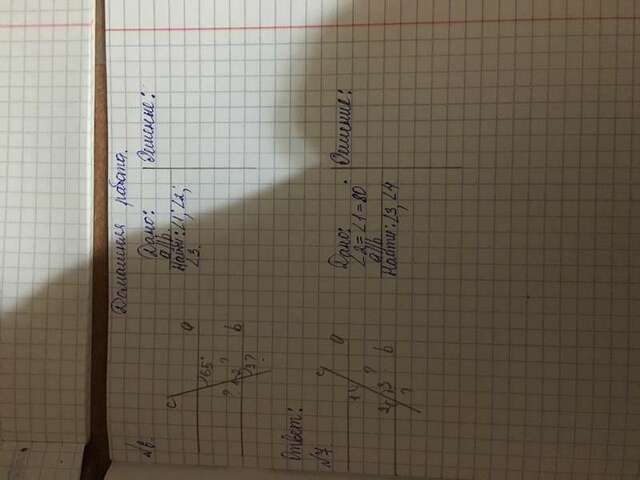 Домашняя работа.
№6.
Дано:
a||b
Найти: ∠1; ∠2;
∠3.
Решение:
c
a
65°
b
? 1
2 ?
3?
Ответ:
№7
Дано:
∠2 = ∠1 = 80
a||b
Найти: ∠3, ∠4
Решение:
c
a
b
3
?
?